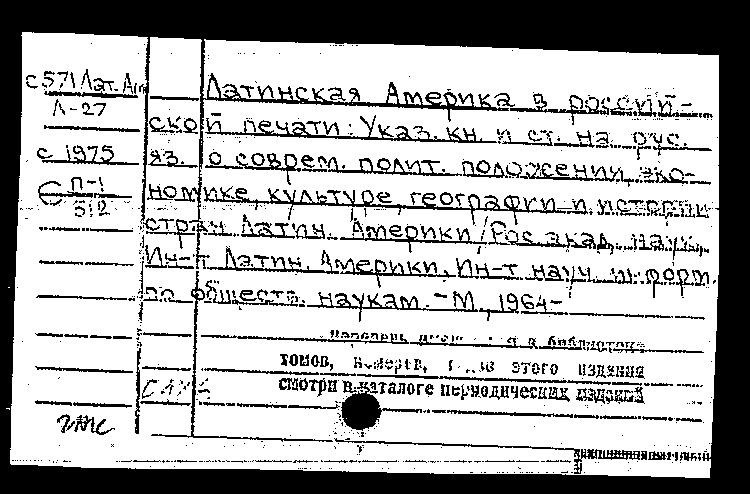 с571 Лат. Ам
Л-27
с 1975
Є П-1
512
Латинская Америка в россий-
ской печати: Указ. кн. и ст. на рус.
яз. о соврем. полит. положении, эко-
номике, культуре, географии и истории
стран Латин. Америки / Рос. акад. наук,
Ин-т Латин. Америки, Ин-т науч. информ.
по обществ. наукам. - М., 1964-
библиотеке
томов, номеров, этого издания
смотри в каталоге периодических изданий